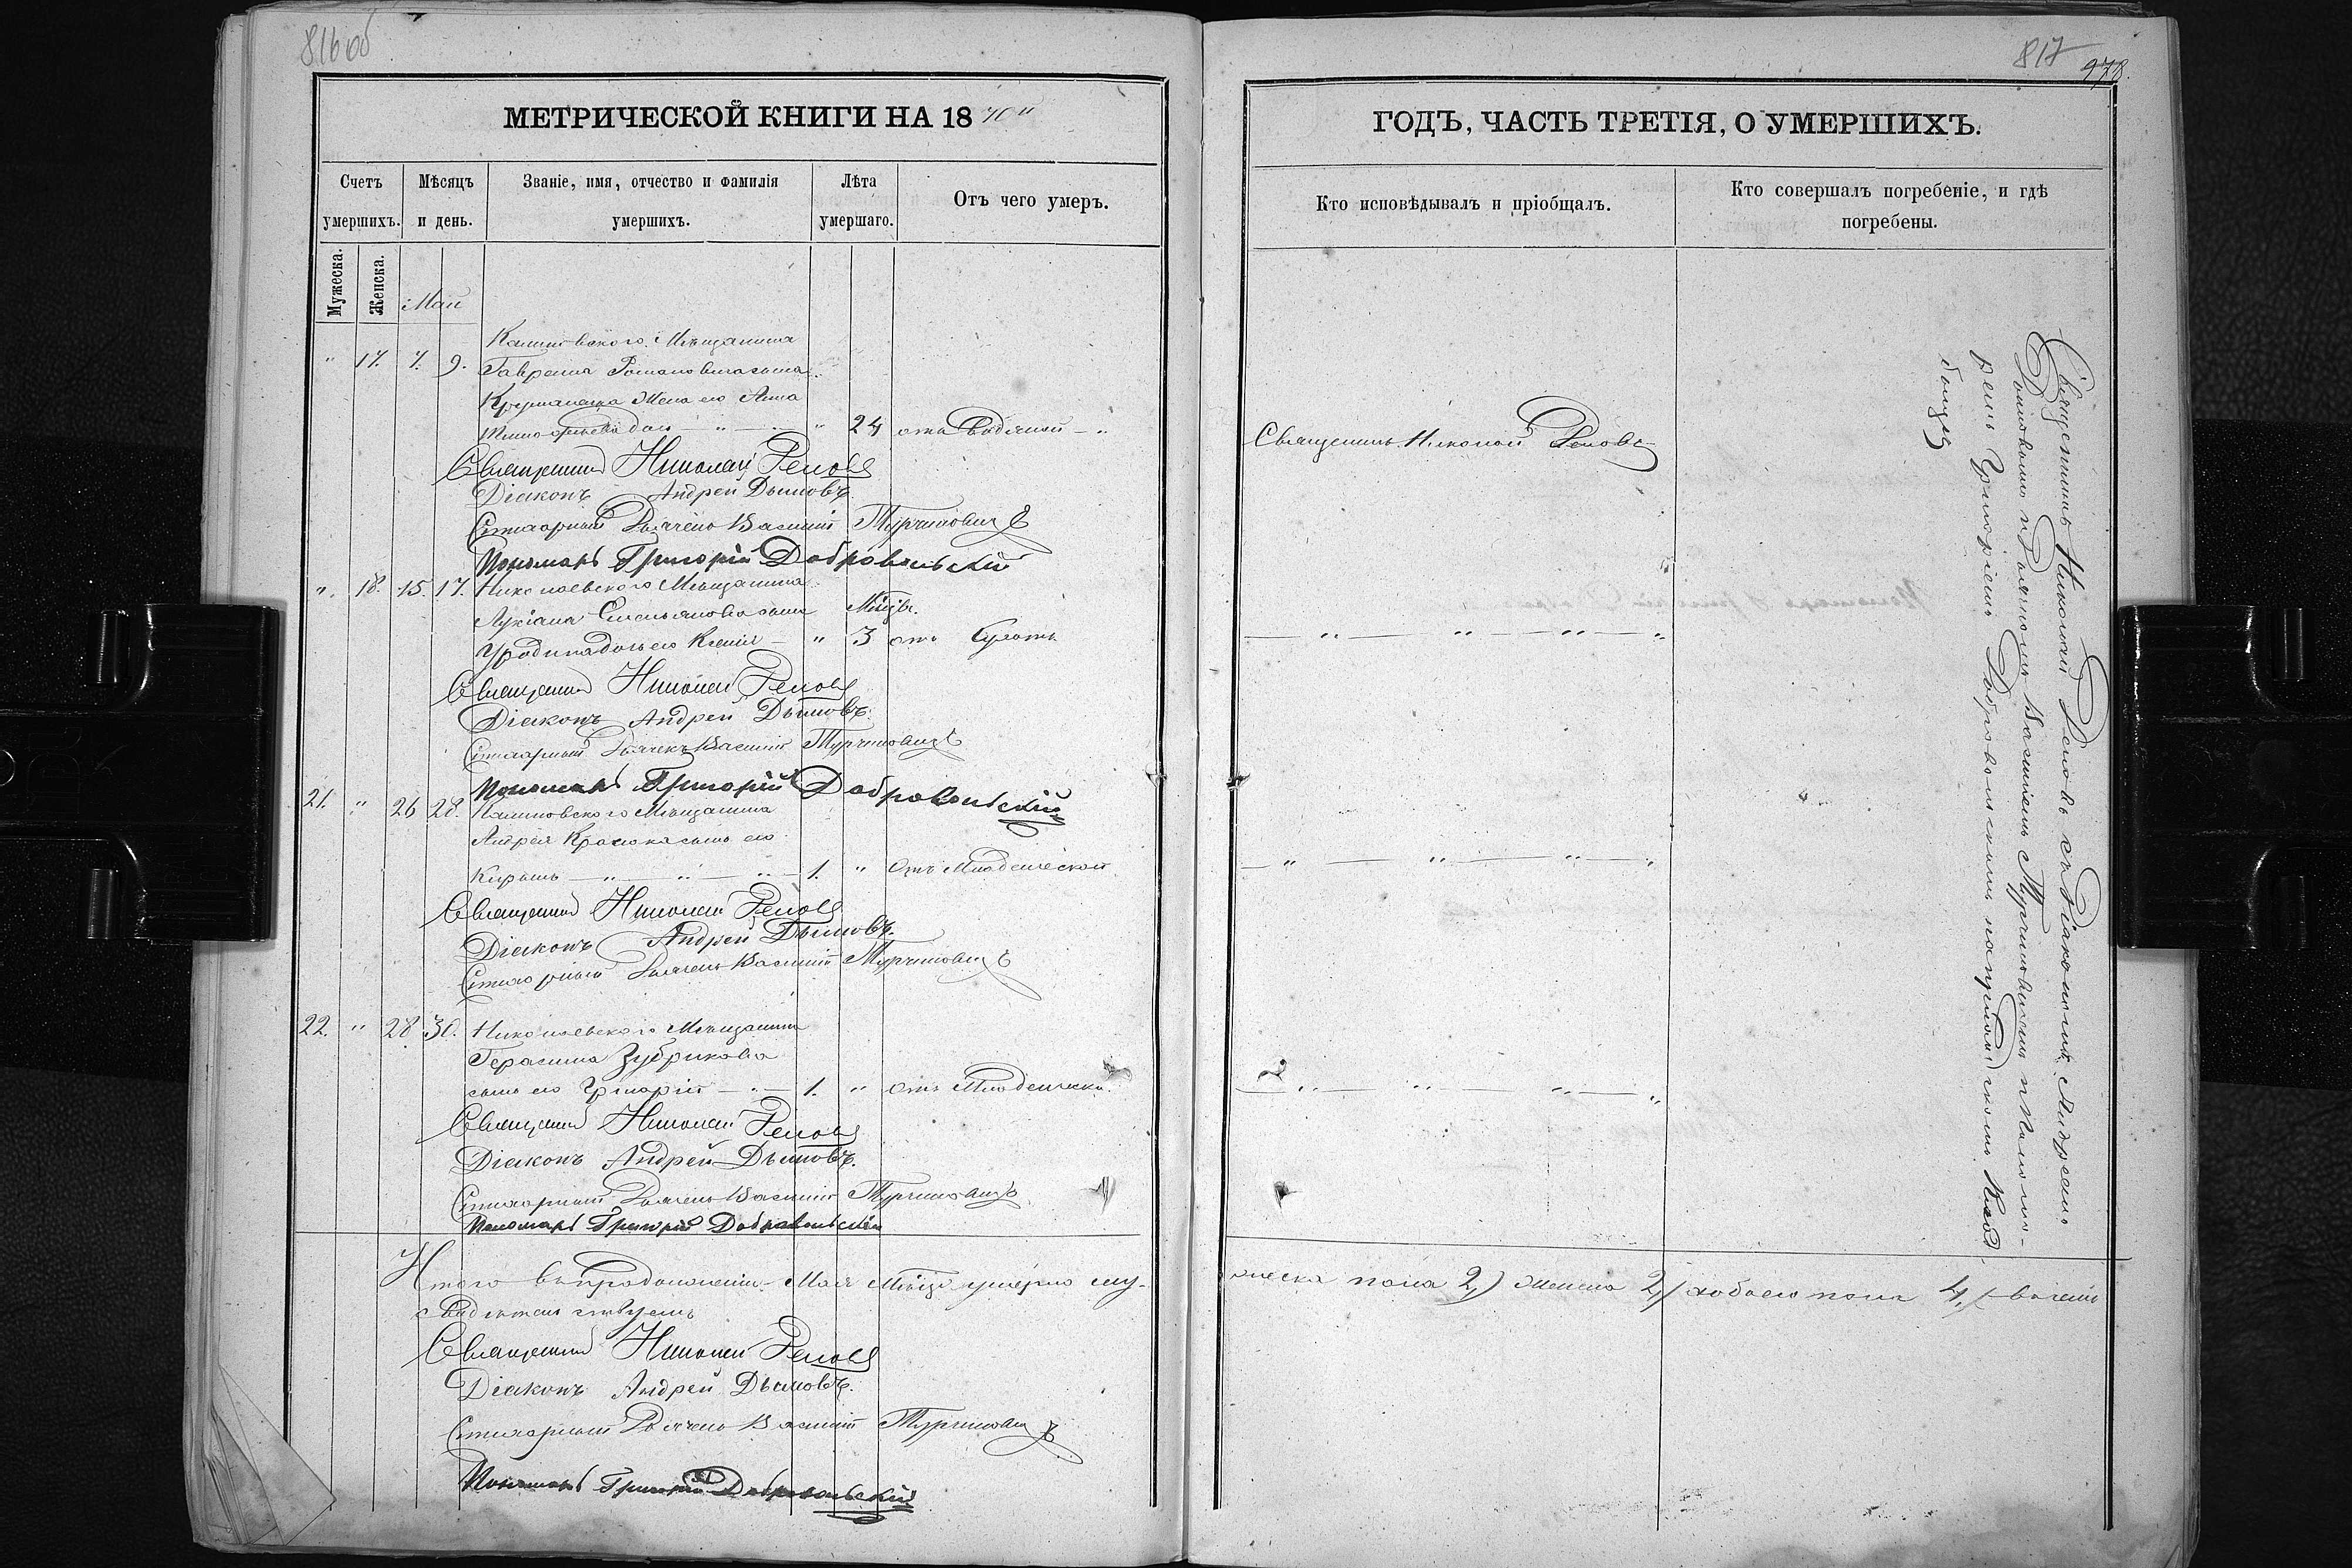 816 об
МЕТРИЧЕСКОЙ КНИГИ НА 1870й
Счетъ умершихъ.
Мѣсяцъ и день.
Званіе, имя, отчество и фамилія умершихъ.
Лѣта умершаго.
Отъ чего умеръ.
Мужеска.
Женска.
Май
" 17. 7. 9. Мѣщанина
Гавріила Романовича сына
жена его Анна
" 24 отъ Водяной "
Священникъ Николай Реповъ
Діаконъ Андрей Дымовъ.
Стихарный Дьячекъ Василій Турчиновичъ
Пономарь Григорій Добровольскій
" 18. 15. 17. Николаевского Мѣщанина
Лукіана Емельянова сына Мѣсцв.
дочь его Ксенія " 3 отъ
Священникъ Николай Реповъ
Діаконъ Андрей Дымовъ.
Стихарный Дьячекъ Василій Турчиновичъ
Пономарь Григорій Добровольскій
21. " 26 28. Мѣщанина
Андрея сынъ его
1. " Отъ Младенческой
Священникъ Николай Реповъ
Діаконъ Андрей Дымовъ.
Стихарный Дьячекъ Василій Турчиновичъ
22. " 28. 30. Николаевского Мѣщанина
Герасима Зубрикова
сынъ его Григорій 1. " отъ Младенческ.
Священникъ Николай Реповъ
Діаконъ Андрей Дымовъ.
Стихарный Дьячекъ Василій Турчиновичъ
Пономарь Григорій Добровольскій
Итого въ продолженіи Мая Мѣсца умерло му-
свидѣтельствуемъ
Священникъ Николай Реповъ
Діаконъ Андрей Дымовъ.
Стихарный Дьячекъ Василій Турчиновичъ
Пономарь Григорій Добровольскій
817
978.
ГОДЪ, ЧАСТЬ ТРЕТІЯ, О УМЕРШИХЪ.
Кто исповѣдывалъ и пріобщалъ.
Кто совершалъ погребеніе, и гдѣ погребены.
Священникъ Николай Реповъ
Священникъ Николай Реповъ съ Діакономъ Андреемъ
Дымовымъ и Дьячкомъ Василіемъ Турчиновичемъ и Поном-
ремъ Григоріемъ Добровольскимъ на приходскомъ Клад
бищѣ
жеска пола 2,) женска 2,) обоего пола 4,) въ чемъ